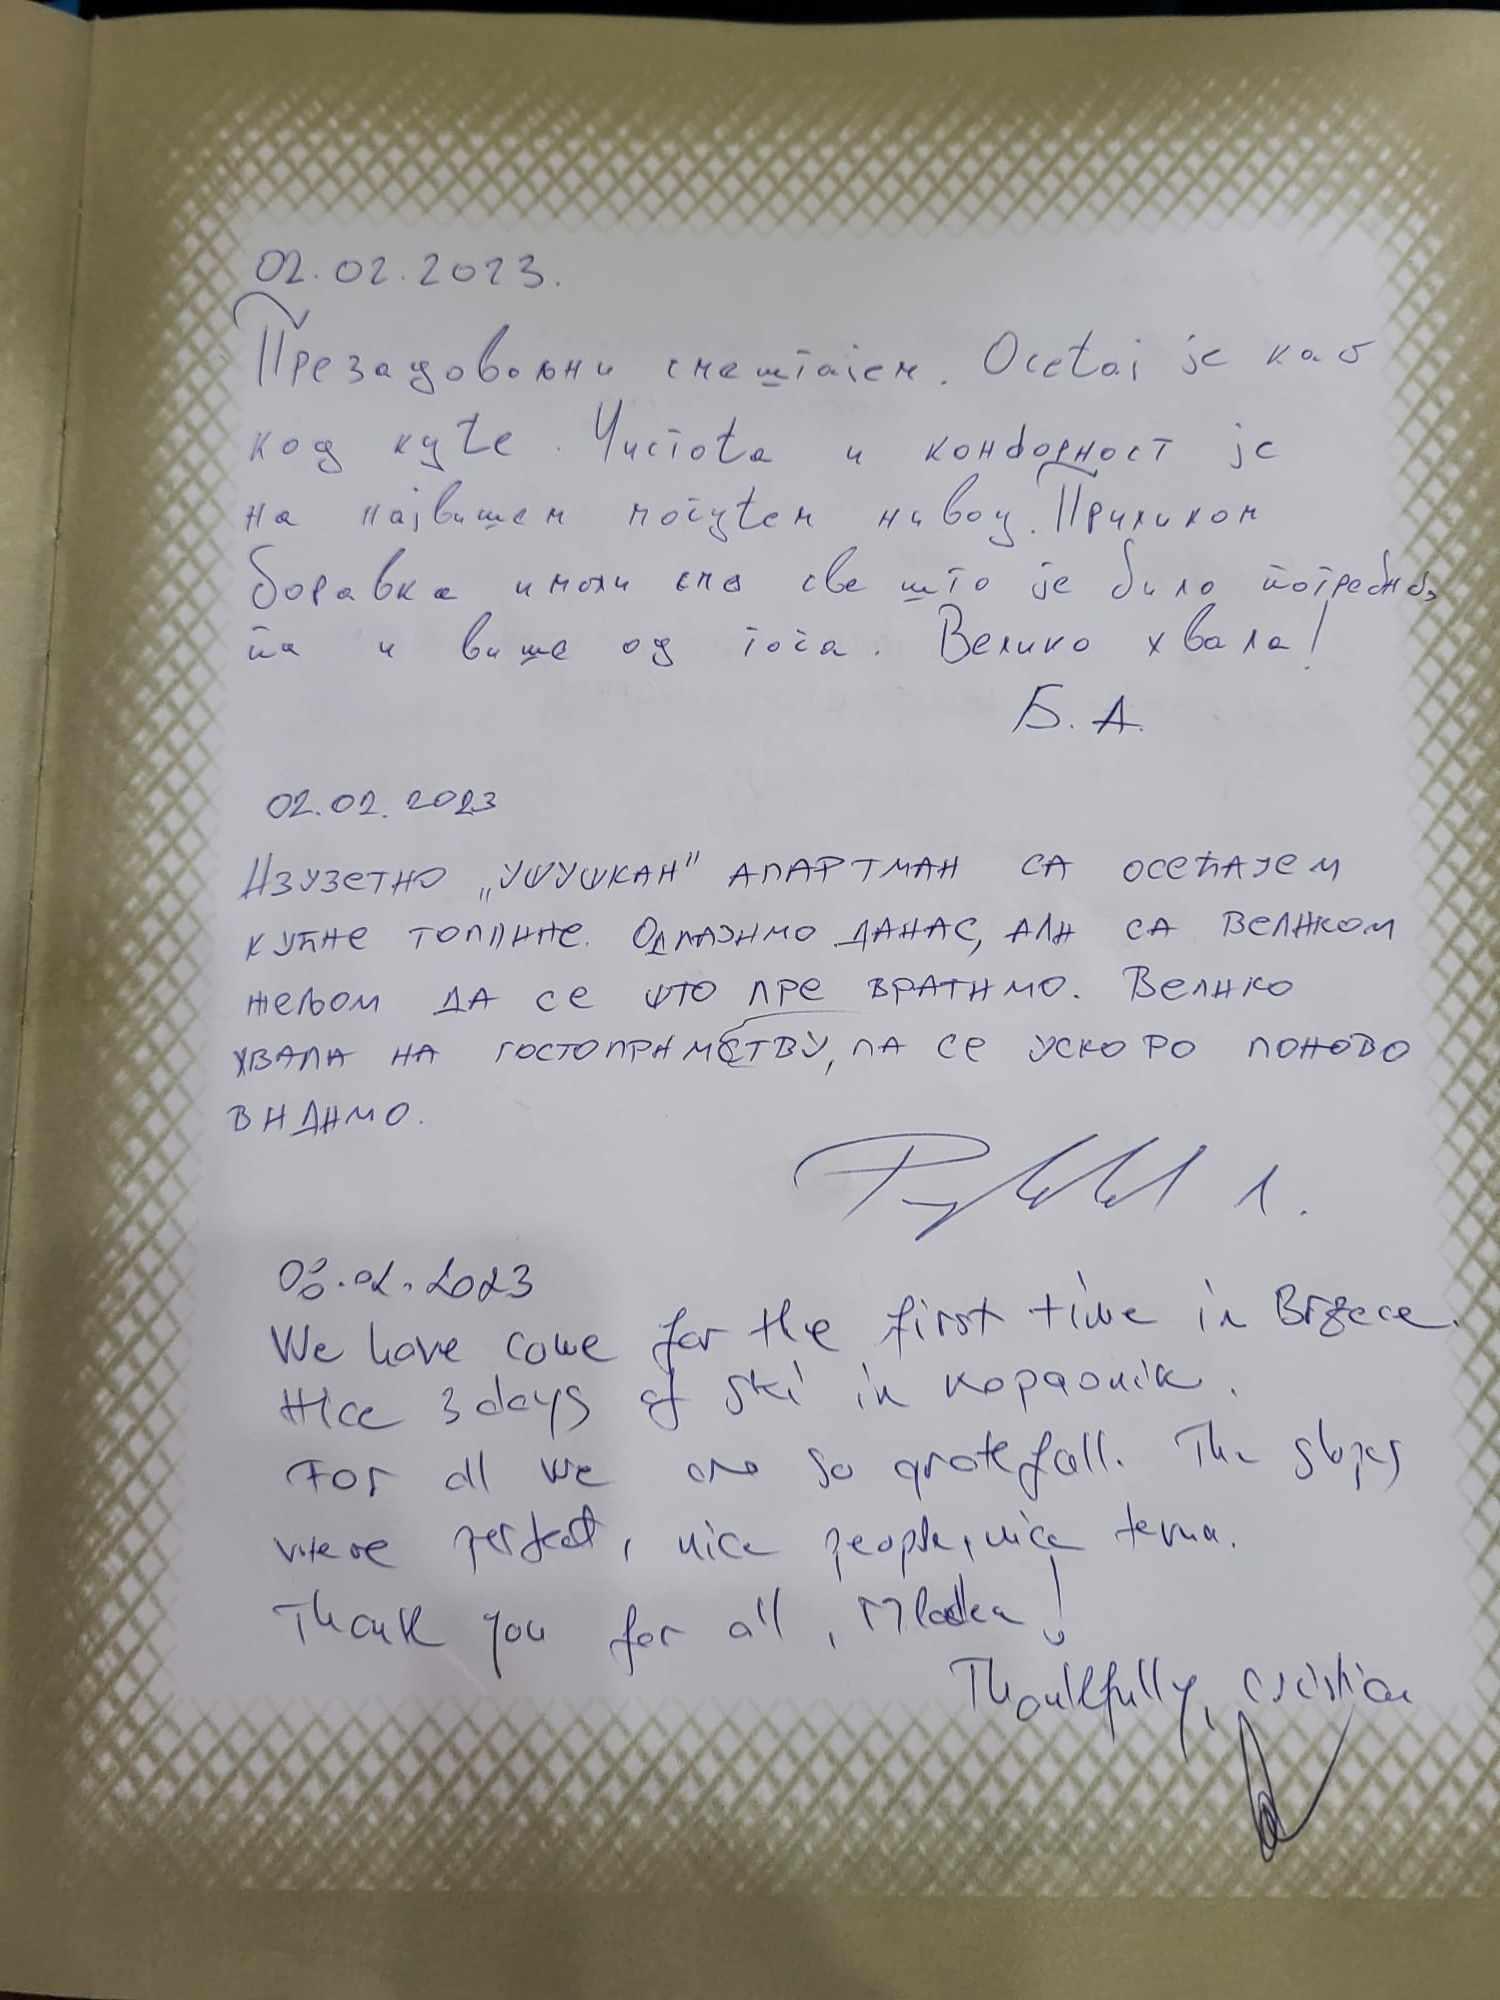 02.02.2023.
Презадовољни смештајем. Осећај је као
код куће. Чистота и конфорност је
на највишем могућем нивоу. Приликом
боравка имали смо све што је било потребно,
па и више од тога. Велико хвала!
Б. А.
02.02.2023
Изузетно „ушушкан" апартман са осећајем
кућне топлине. Одлазимо данас, али са великом
жељом да се што пре вратимо. Велико
хвала на гостопримству, па се ускоро поново
видимо.
Л.
03.02.2023
We have come for the first time in Brzece.
Nice 3 days of ski in Kopaonik.
For all we are so gratefull. The slopes
were perfect, nice people, nice
Thank you for all, Mladen!
Thankfully, Cristian